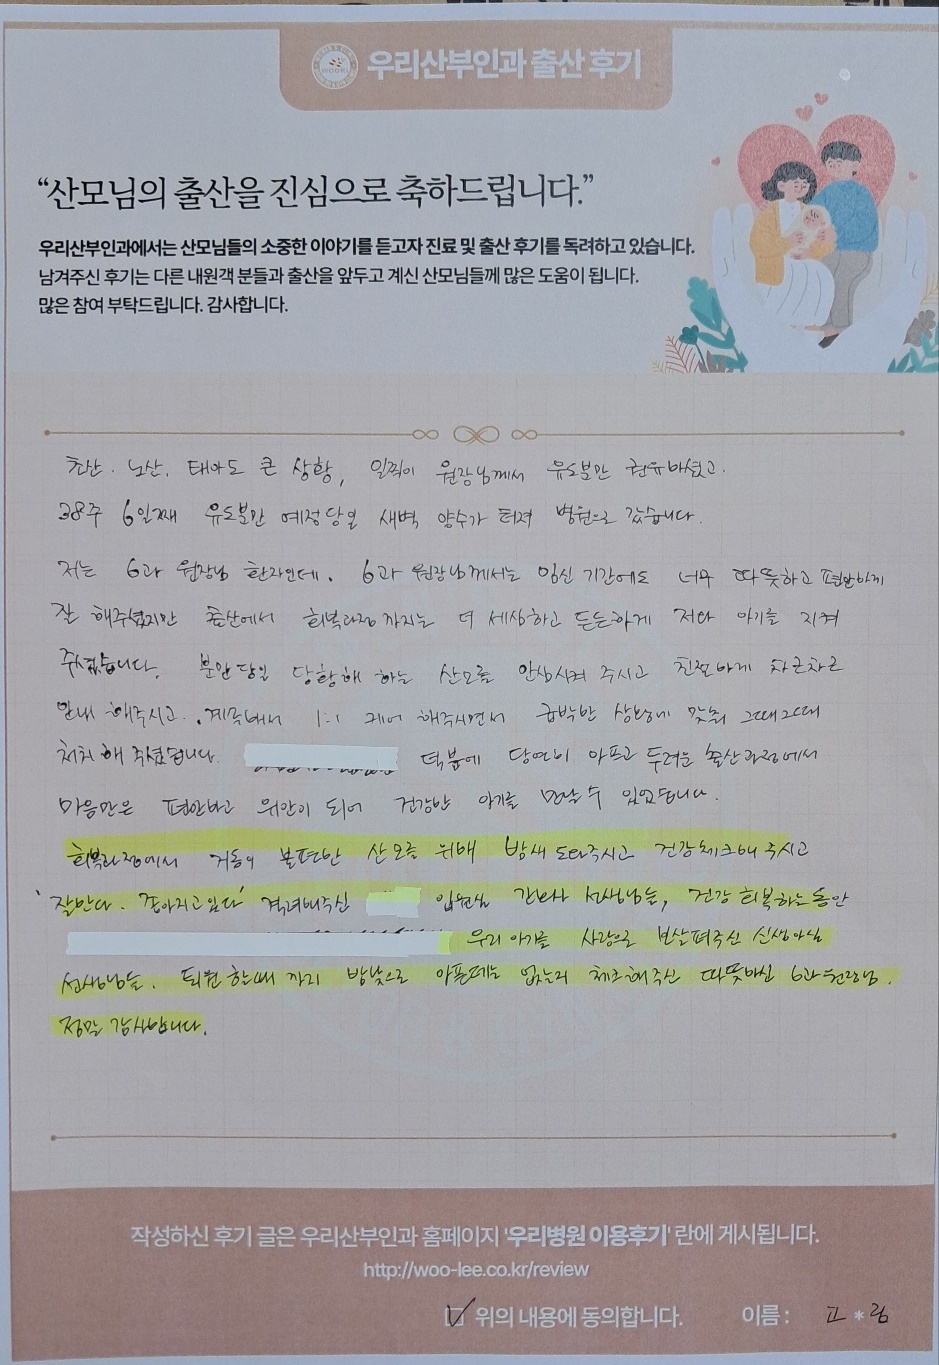 우리산부인과 출산 후기
“산모님의 출산을 진심으로 축하드립니다.”
우리산부인과에서는 산모님들의 소중한 이야기를 듣고자 진료 및 출산 후기를 독려하고 있습니다.
남겨주신 후기는 다른 내원객 분들과 출산을 앞두고 계신 산모님들께 많은 도움이 됩니다.
많은 참여 부탁드립니다. 감사합니다.
초산. 노산. 태아도 큰 상황, 일찍이 원장님께서 유도분만 권유하셨고.
38주 6일째 유도분만 예정당일 새벽 양수가 터져 병원으로 갔습니다.
저는 6과 원장님 환자인데. 6과 원장님께서는 임신 기간에도 너무 따뜻하고 편안하게
잘 해주셨지만 출산에서 회복과정 까지는 더 세심하고 든든하게 저와 아기를 지켜
주셨습니다. 분만 당일 당황해 하는 산모를 안심시켜 주시고 친절하게 차근차근
안내 해주시고. 계속해서 1:1 케어 해주시면서 급박한 상황에 맞춰 그때그때
처치 해 주셨습니다. 덕분에 당연히 아프고 두려운 출산과정에서
마음만은 편안하고 위안이 되어 건강한 아기를 만날 수 있었습니다.
회복과정에서 거동이 불편한 산모를 위해 밤새 도와주시고 건강체크해 주시고
'잘한다. 좋아지고있다' 격려해주신 입원실 간호사 선생님들, 건강 회복하는동안
우리 아기를 사랑으로 보살펴주신 신생아실
선생님들. 퇴원 할때 까지 밤낮으로 아픈데는 없는지 체크해주신 따뜻하신 6과원장님.
정말 감사합니다.
작성하신 후기 글은 우리산부인과 홈페이지 '우리병원 이용후기' 란에 게시됩니다.
http://woo-lee.co.kr/review
위의 내용에 동의합니다. 이름 : 고 * 림